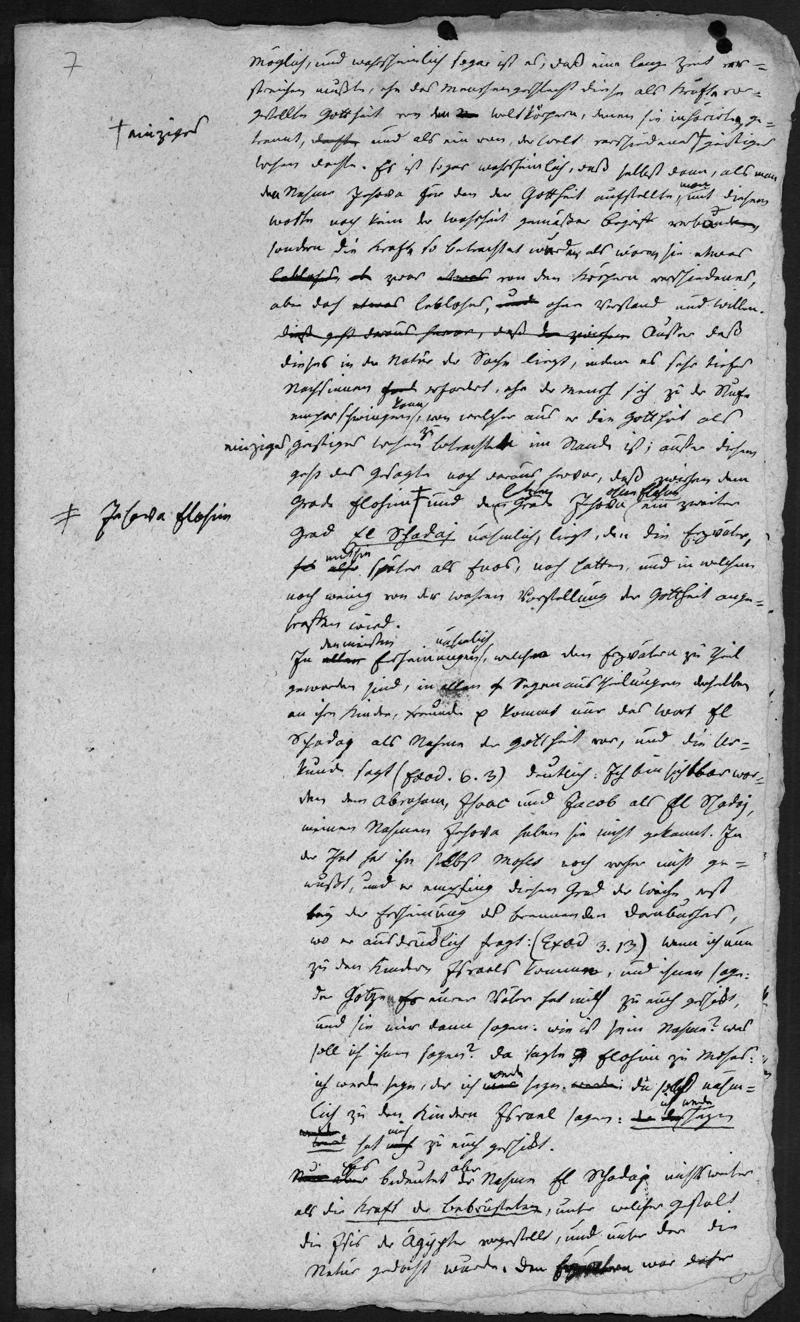 7
möglich, und wahrscheinlich sogar ist es, daß eine lange Zeit ver=
streichen mußte, ehe das Menschengeschlecht diese als Kräfte vor=
gestellte Gottheit von den Weltkörpern, denen sie inhärirten, ge=
† einziges
trennt, und als ein von der Welt verschiedenes † geistiges
Wesen dachte. Es ist sogar wahrscheinlich, daß selbst dann, als man
den Nahmen Jehova für den der Gottheit aufstellte, man mit diesem
Worte noch kein der Wahrheit gemäßer Begriff verbunden
sondern die Kräfte so betrachtet wurden, als wären sie etwas
lebloses, zwar etwas von den Körpern verschiedenes,
aber doch etwas lebloses, und ohne Verstand und Willen.
dieß geht daraus hervor, daß zwischen Ausser daß
dieses in der Natur der Sache liegt, indem es sehr tiefes
Nachsinnen erfordert, ehe der Mensch sich zu der Stufe
emporschwingen kann, von welcher aus er die Gottheit als
einziges, geistiges Wesen zu betrachten im Stande ist; ausser diesem
geht das Gesagte noch daraus hervor, daß zwischen dem
‡ Jehova Elohim
Grade Elohim ‡ und dem letzten Grade Jehova ein zweiter
Grad El Schadaj nähmlich, liegt, den die Erzväter,
mithin später als Enos, noch hatten, und in welchem
noch wenig von der wahren Vorstellung der Gottheit ange=
troffen wird.
In den meisten Erscheinungen nähmlich, welche den Erzvätern zu Theil
geworden sind, in allen Segenaustheilungen derselben
an ihre Kinder, Freunde p kommt nur das Wort El
Schadaj als Nahme der Gottheit vor, und die Ur=
kunde sagt (Exod. 6. 3) deutlich: Ich bin sichtbar wor=
den dem Abraham, Isaac und Jacob als El Schadaj,
meinen Nahmen Jehova haben sie nicht gekannt. In
der That hat ihn selbst Moses noch vorher nicht ge=
wußt, und er empfing diesen Grad der Weihe erst
bey der Erscheinung des brennenden Dornbusches,
wo er ausdrücklich fragt: (Exod 3. 13) wenn ich nun
zu den Kindern Israels komme, und ihnen sage:
der Götze eurer Väter hat mich zu euch geschickt,
und sie mir dann sagen: wie ist sein Nahme? was
soll ich ihnen sagen? da sagte Elohim zu Moses:
ich werde seyn, der ich werde seyn. du sollst nähm=
lich zu den Kindern Israel sagen: ich werde seyn
hat mich zu euch geschickt.
bedeutet aber der Nahme El Schadaj nichts weiter
als die Kraft der bebrüsteten, unter welcher Gestalt
die Isis der Ägypter vorgestellt, und unter der die
Natur gedacht wurde. Den Erzvätern war dieser